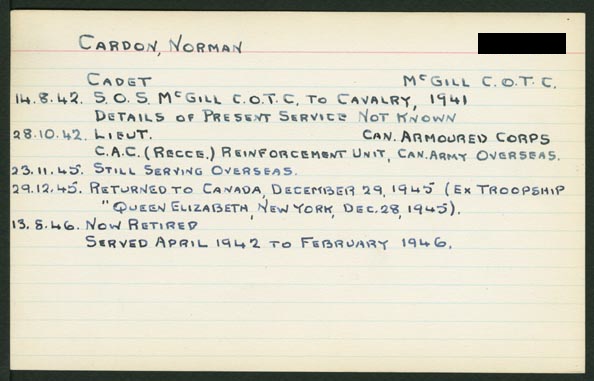 CARDON, NORMAN
CADET McGILL C.O.T.C.
14.8.42. S.O.S. McGILL C.O.T.C. TO CAVALRY, 1941
DETAILS OF PRESENT SERVICE NOT KNOWN
28.10.42. LIEUT. CAN. ARMOURED CORPS
C.A.C. (RECCE.) REINFORCEMENT UNIT, CAN. ARMY OVERSEAS.
23.11.45. STILL SERVING OVERSEAS.
29.12.45. RETURNED TO CANADA, DECEMBER 29, 1945 (EX TROOPSHIP
"QUEEN ELIZABETH, NEW YORK, DEC. 28, 1945).
13.8.46. NOW RETIRED
SERVED APRIL 1942 TO FEBRUARY 1946.